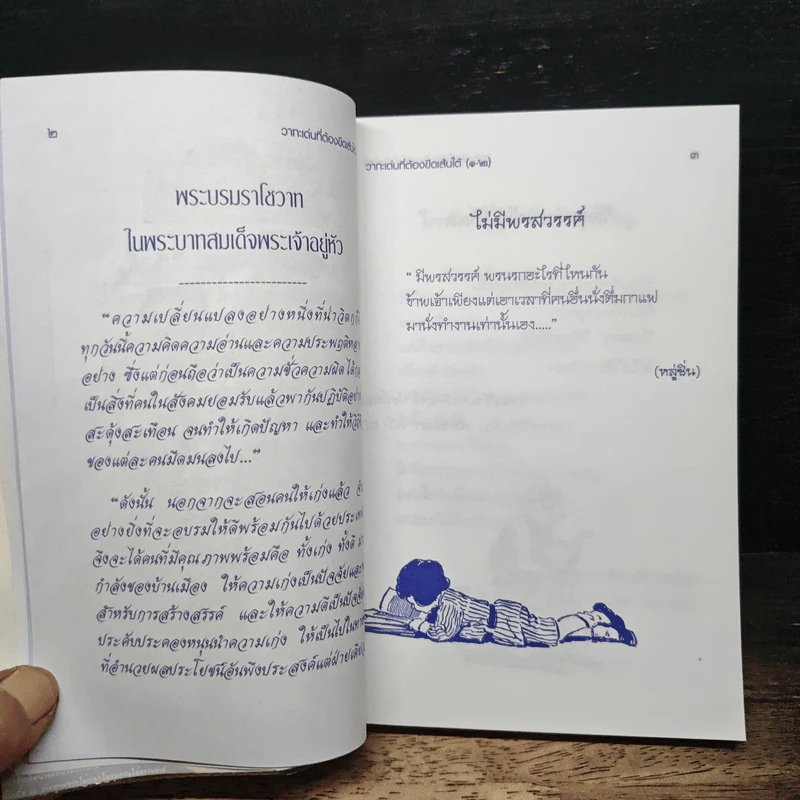 ๒
วาทะเด่นที่ต้องขีดเส้นใต้
พระบรมราโชวาท
ในพระบาทสมเด็จพระเจ้าอยู่หัว
“ความเปลี่ยนแปลงอย่างหนึ่งที่น่าวิตก
ทุกวันนี้ความคิดความอ่านและความประพฤติ
อย่าง ซึ่งแต่ก่อนถือว่าเป็นความชั่วความผิดได้
เป็นสิ่งที่คนในสังคมยอมรับแล้วพากันปฏิบัติ
สะดุ้งสะเทือน จนทำให้เกิดปัญหา และทำให้
ของแต่ละคนมืดมนลงไป...”
“ดังนั้น นอกจากจะสอนคนให้เก่งแล้ว
อย่างยิ่งที่จะอบรมให้ดีพร้อมกันไปด้วย
จึงจะได้คนที่มีคุณภาพพร้อมคือ ทั้งเก่ง ทั้งดี
กำลังของบ้านเมือง ให้ความเก่งเป็นปัจจัยและ
สำหรับการสร้างสรรค์ และให้ความดีเป็นปัจจัย
ประคับประคองหนุนนำความเก่ง ให้เป็นไปใน
ที่อำนวยผลประโยชน์อันพึงประสงค์แต่ฝ่ายเดียว
วาทะเด่นที่ต้องขีดเส้นใต้ (๑-๒)
๓
ไม่มีพรสวรรค์
“ มีพรสวรรค์ พรนรกอะไรที่ไหนกัน
ข้าพเจ้าเพียงแต่เอาเวลาที่คนอื่นนั่งดื่มกาแฟ
มานั่งทำงานเท่านั้นเอง.....”
(หลู่ซิ่น)